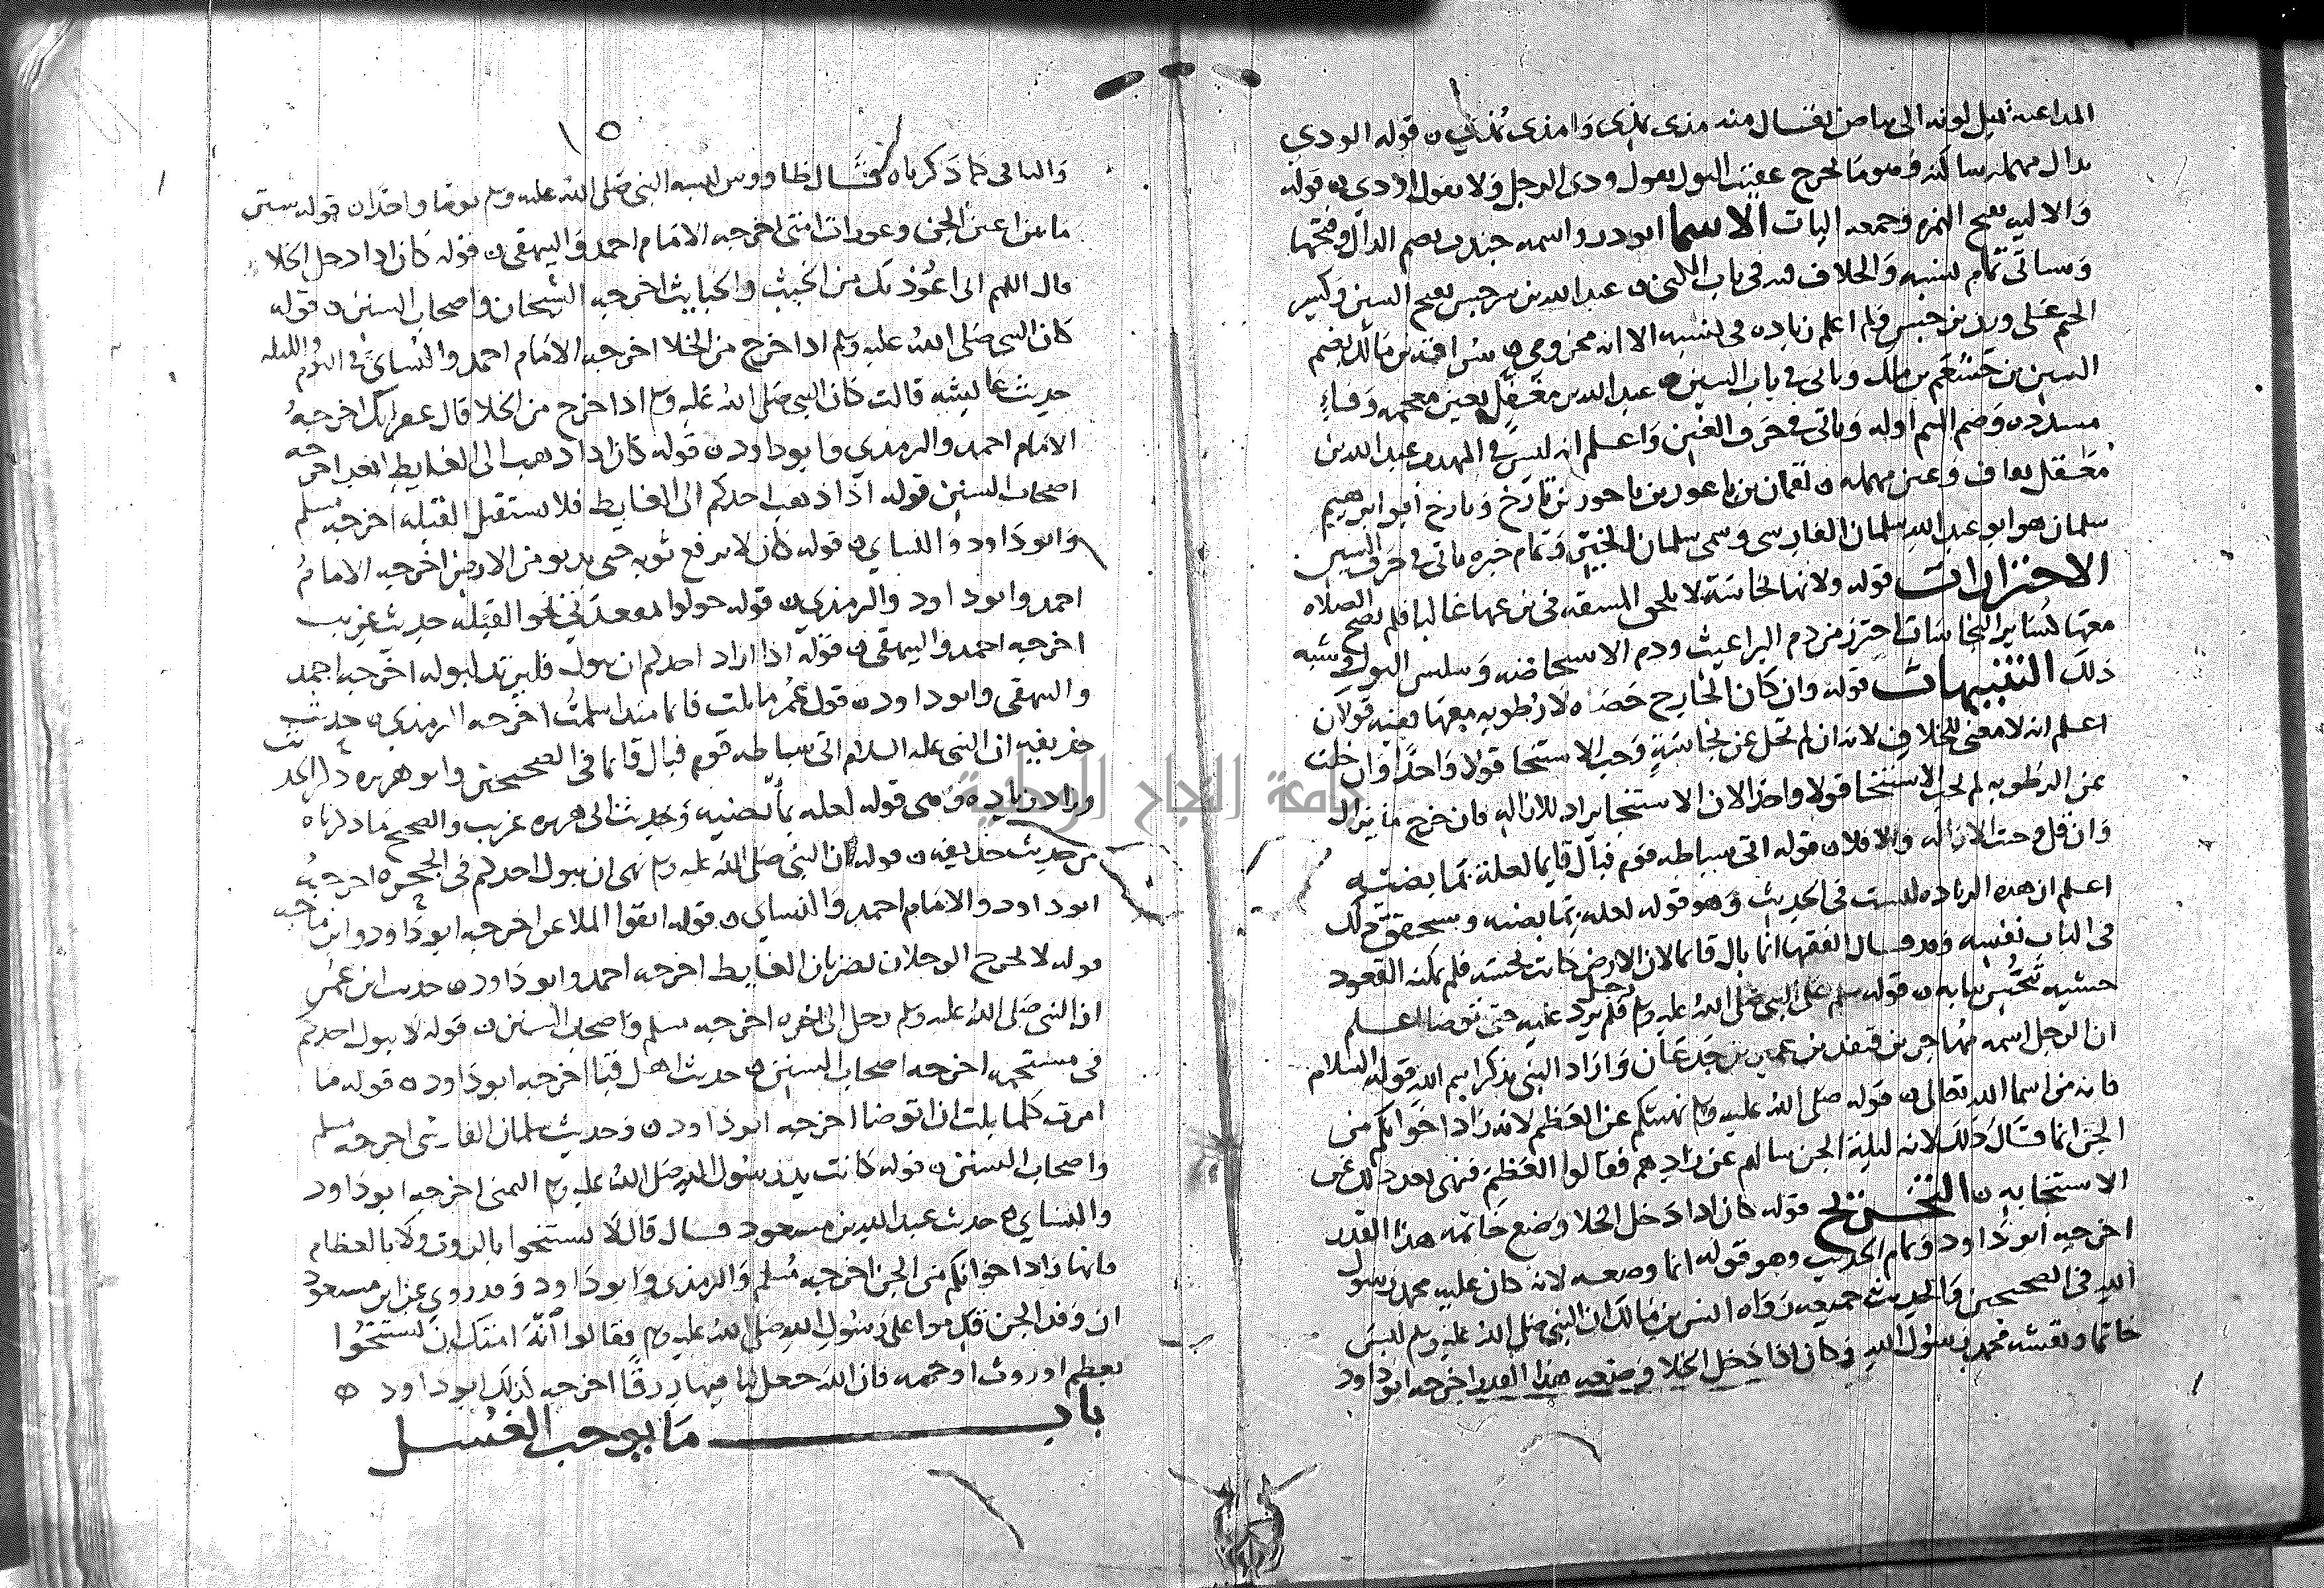 المداعبه يميل لونه الى بياض يقال منه مذى يمذي وامذى يمذي ن قوله الودي
بدال مهمله ساكنه وهو ما يخرج عقيب البول يقول ودى الرجل ولا يقول اودى ن قوله
والاليه بفتح الهمزه وجمعه اليات الاسما ابو ذر واسمه جندب بضم الدال وفتحها
وسياتي تمام نسبه والخلاف فيه في باب الكنى ن عبد الله بن سرجس بفتح السين وكسر
الجيم على وزن نرجس ولم اعلم زياده في نسبه الا انه مخزومي ن سراقة بن مالك بضم
السين بن جعشم بن مالك وياتي في باب السين ن عبد الله بن مغفل بغين معجمه وفاء
مشدده وضم الميم اوله وياتي في حرف الغين واعلم ان ليس في المهذب عبد الله بن
معقل بقاف وعين مهمله ن لقمان بن باعور بن ناحور بن تارخ وتارخ ابو ابرهيم
سلمان هو ابو عبد الله سلمان الفارسي وسمى سلمان الخير وتمام خبره ياتي في حرف السين
الاحترازات قوله ولانها نجاسة لا يلحق المشقه في ازالتها غالبا فلم تصح الصلاه
معها كساير النجاسات احترز من دم البراغيث ودم الاستحاضه وسلس البول وشبه
ذلك التنبيهات قوله وان كان الخارج حصاه لا رطوبه معها ففيه قولان
اعلم انه لا معنى للخلاف لانه ان لم تخل عن نجاسة وجب الاستنجا قولا واحدا وان خلت
عن الرطوبه لم يجب الاستنجا قولا واحدا لان الاستنجا يراد للازاله فان خرج ما يزال
وان قل وجبت الازاله والا فلا ن قوله اتى سباطه قوم فبال قايما لعلة بمابضيه
اعلم ان هذه الزياده ليست في الحديث وهو قوله لعله بمابضيه وسنحقق ذلك
في الباب نفسه وقد قال الفقها انما بال قايما لان الارض كانت نجسه فلم يمكنه القعود
خشيه تنجس ثيابه ن قوله سلم رجل على النبي صلى الله عليه وسلم فلم يرد عليه حتى توضا اعلم
ان الرجل اسمه مهاجر بن قنفذ بن عمير بن جدعان واراد النبي بذكر اسم الله قوله السلام
فانه من اسما الله تعالى ن قوله صلى الله عليه وسلم نهيتكم عن العظم لانه زاد اخوانكم من
الجن انما قال ذلك لانه ليلة الجن سالهم عن زادهم فقالوا العظم فنهى بعد ذلك عن
الاستنجا به ن التخريج قوله كان اذا دخل الخلا وضع خاتمه هذا القدر
اخرجه ابو داود وتمام الحديث وهو قوله انما وضعه لانه كان عليه محمد رسول
الله في الصحيحين والحديث جميعه رواه انس بن مالك ان النبي صلى الله عليه وسلم لبس
خاتما ونقشه محمد رسول الله وكان اذا دخل الخلا وضعه هذا القدر اخرجه ابو داود
١٥
والباقي كما ذكرناه قال طاووس النبي صلى الله عليه وسلم واحدا ن قوله ستر
ما بين اعين الجن وعورات امتي اخرجه الامام احمد والبيهقي ن قوله كان اذا دخل الخلا
قال اللهم اني اعوذ بك من الخبث والخبايث اخرجه الشيخان واصحاب السنن ن قوله
كان النبي صلى الله عليه وسلم اذا خرج من الخلا اخرجه الامام احمد والنساي في اليوم والليله
حديث عايشه قالت كان النبي صلى الله عليه وسلم اذا خرج من الخلا قال غفرانك اخرجه
الامام احمد والترمذي وابو داود ن قوله كان اذا ذهب الى الغايط ابعد اخرجه
اصحاب السنن قوله اذا ذهب احدكم الى الغايط فلا يستقبل القبله اخرجه مسلم
وابو داود والنساي ن قوله كان لا يرفع ثوبه حتى يدنو من الارض اخرجه الامام
احمد وابو داود والترمذي ن قوله حولوا مقعدتي نحو القبله حديث غريب
اخرجه احمد والبيهقي ن قوله اذا اراد احدكم ان يبول فليرتد لبوله اخرجه احمد
والبيهقي وابو داود ن قول عمر ما بلت قايما منذ اسلمت اخرجه الترمذي ن حديث
حذيفه ان النبي عليه السلام اتى سباطه قوم فبال قائما في الصحيحين وابو هريره ذكر الحديث
وزاد زياده وهي قوله لعله بمابضيه وحديث ابي هريره غريب والصحيح ما ذكرناه
من حديث حذيفه ن قوله ان النبي صلى الله عليه وسلم نهى ان يبول احدكم في الجحره اخرجه
ابو داود والامام احمد والنساي ن قوله اتقوا الملاعن اخرجه ابو داود وابن ماجه
قوله لا يخرج الرجلان يضربان الغايط اخرجه احمد وابو داود ن حديث ابن عمر
ان النبي صلى الله عليه وسلم رجل الى اخره اخرجه مسلم واصحاب السنن ن قوله لا يبول احدكم
في مستحمه اخرجه اصحاب السنن ن حديث اهل قبا اخرجه ابو داود ن قوله ما
امرت كلما بلت ان اتوضا اخرجه ابو داود ن وحديث سلمان الفارسي اخرجه مسلم
واصحاب السنن ن قوله كانت يد رسول الله صلى الله عليه وسلم اليمنى اخرجه ابو داود
والنساي ن حديث عبد الله بن مسعود قال قال لا تستنجوا بالروث ولا بالعظام
فانها زاد اخوانكم من الجن اخرجه مسلم والترمذي وابو داود وقد روي عن ابن مسعود
ان وفد الجن قدموا على رسول الله صلى الله عليه وسلم فقالوا انه امتك ان يستنجوا
بعظم او روث او حممه فان الله جعل لنا فيها رزقا اخرجه كذلك ابو داود
باب ما يوجب الغسل
جامعة النجاح الوطنية